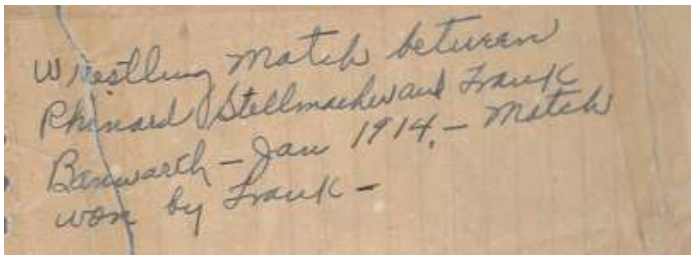 Wrestling Match between
Rhinard Stellmacher and Frank
Banwarth - Jan 1914, - Match
won by Frank -